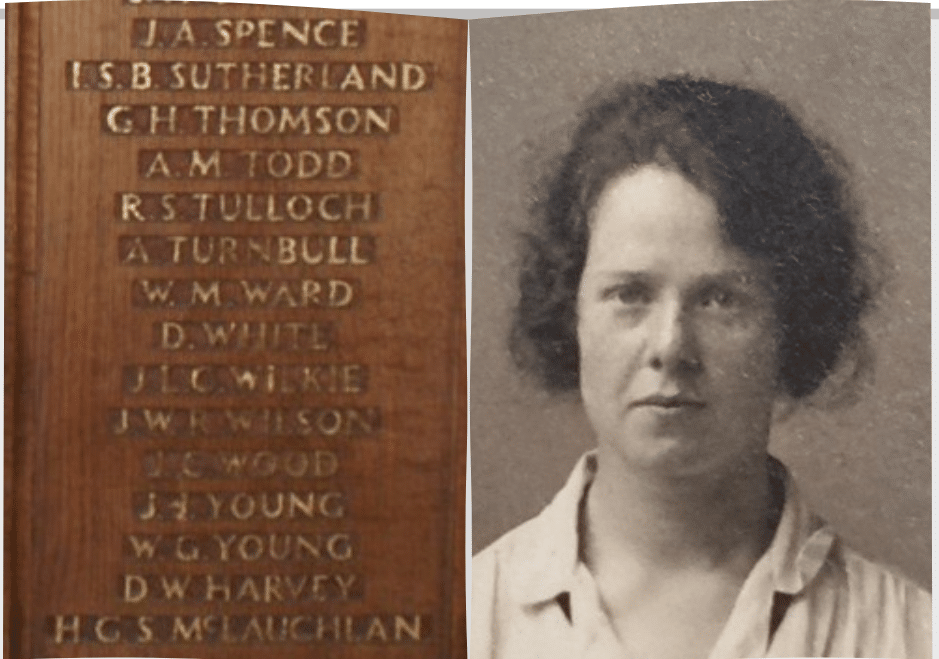 J.A.SPENCE
I.S.B.SUTHERLAND
G.H.THOMSON
A.M.TODD
R.S.TULLOCH
A.TURNBULL
W.M.WARD
D.WHITE
J.L.C.WILKIE
J.W.R.WILSON
J.C.WOOD
J.H.YOUNG
W.G.YOUNG
D.W.HARVEY
H.G.S.McLAUCHLAN